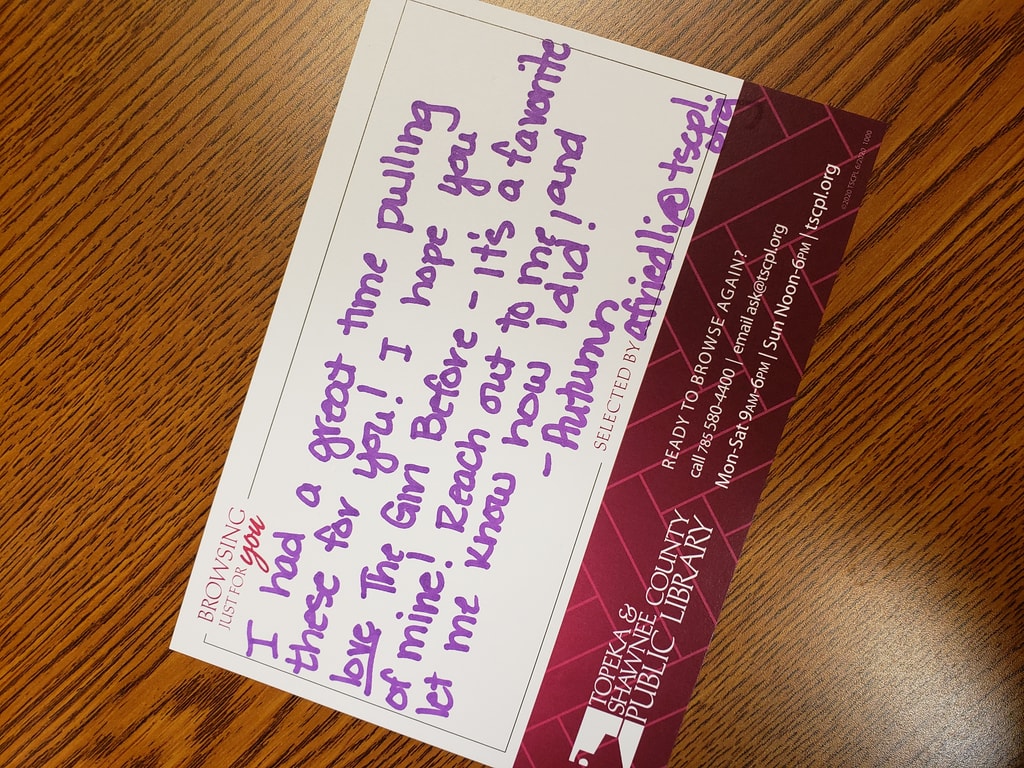 BROWSING
JUST FOR you
I had a great time pulling
these for you! I hope you
love The Girl Before - It's a favorite
of mine! Reach out to me and
let me know how I did!
- Autumn
SELECTED BY afriedli@tscpl.
org
READY TO BROWSE AGAIN?
call 785 580-4400 | email ask@tscpl.org
Mon-Sat 9AM-6PM | Sun Noon-6PM | tscpl.org
TOPEKA &
SHAWNEE COUNTY
PUBLIC LIBRARY